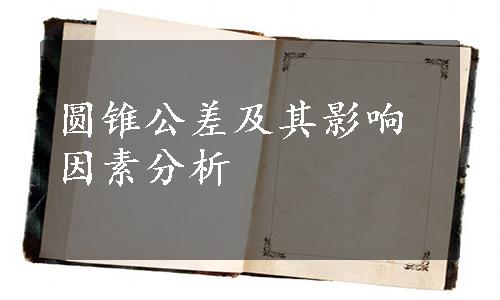 圆锥公差及其影响
因素分析